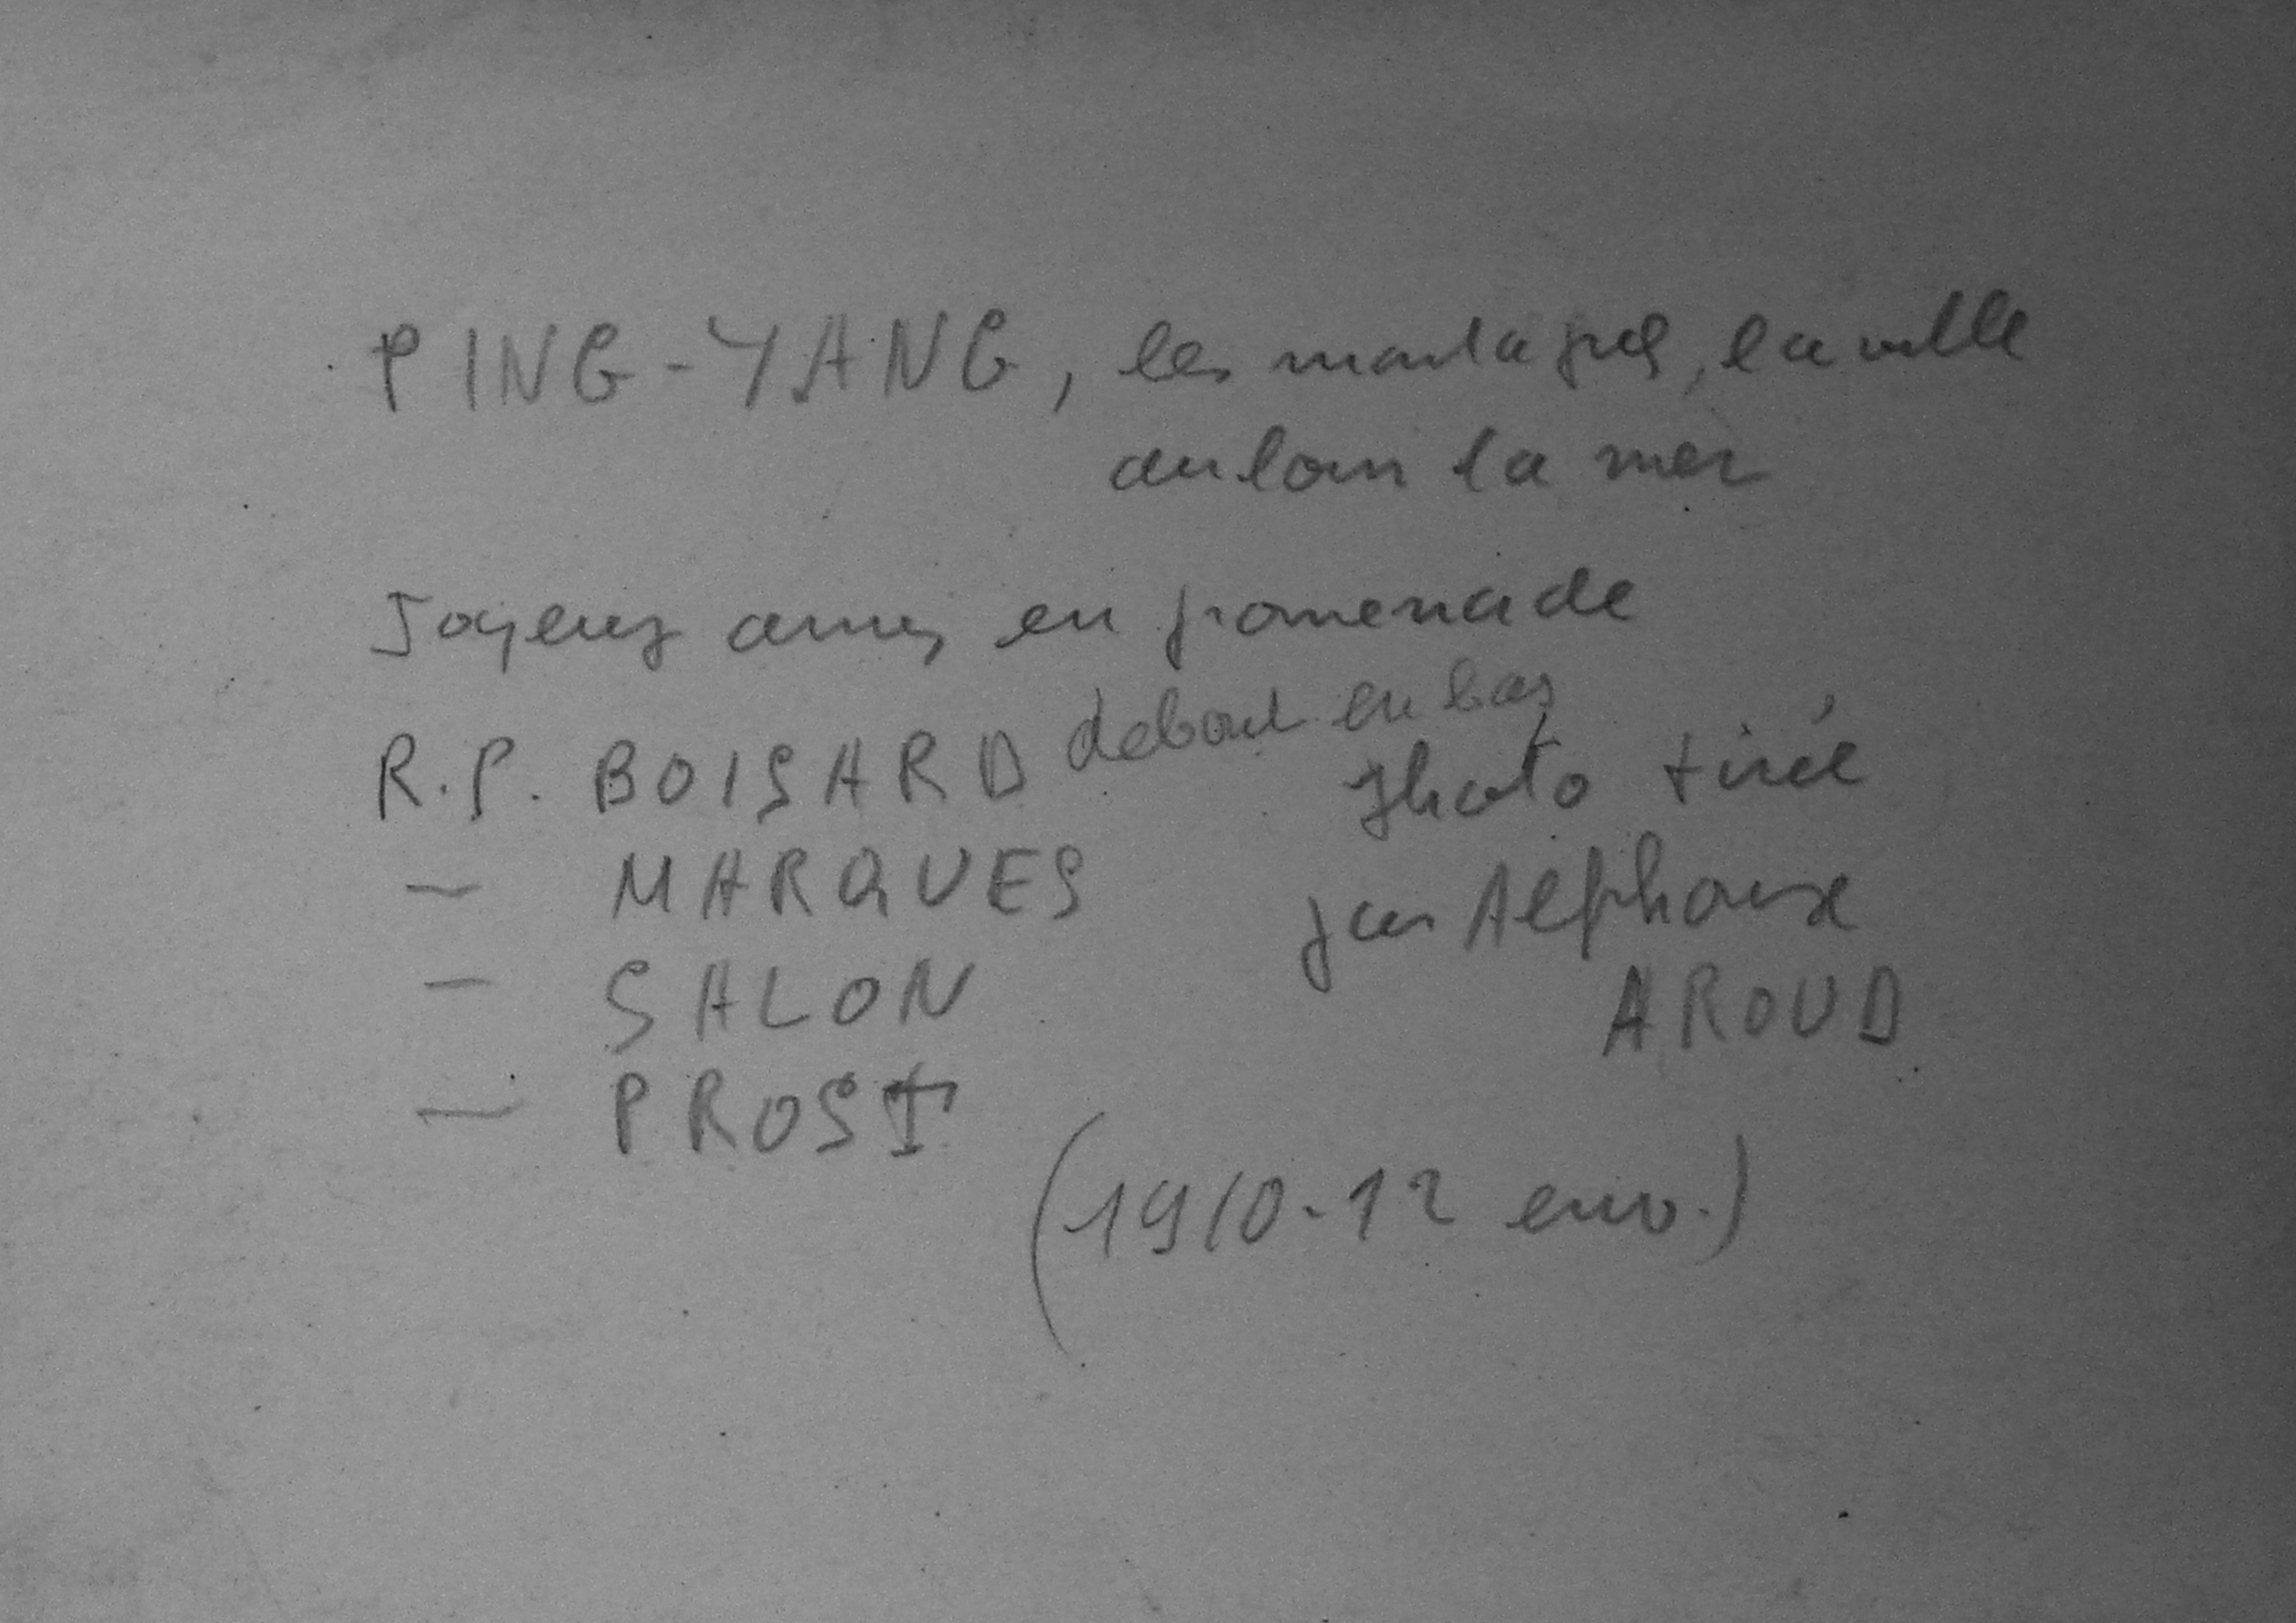 PING-YANG, les montagnes, la ville
au loin la mer
Joyeux amis en promenade
R.P. BOISARD debout en bas
— MARQUES
— SALON
— PROST
Photo tirée
par Alphonse
AROUD
(1910-12 env.)